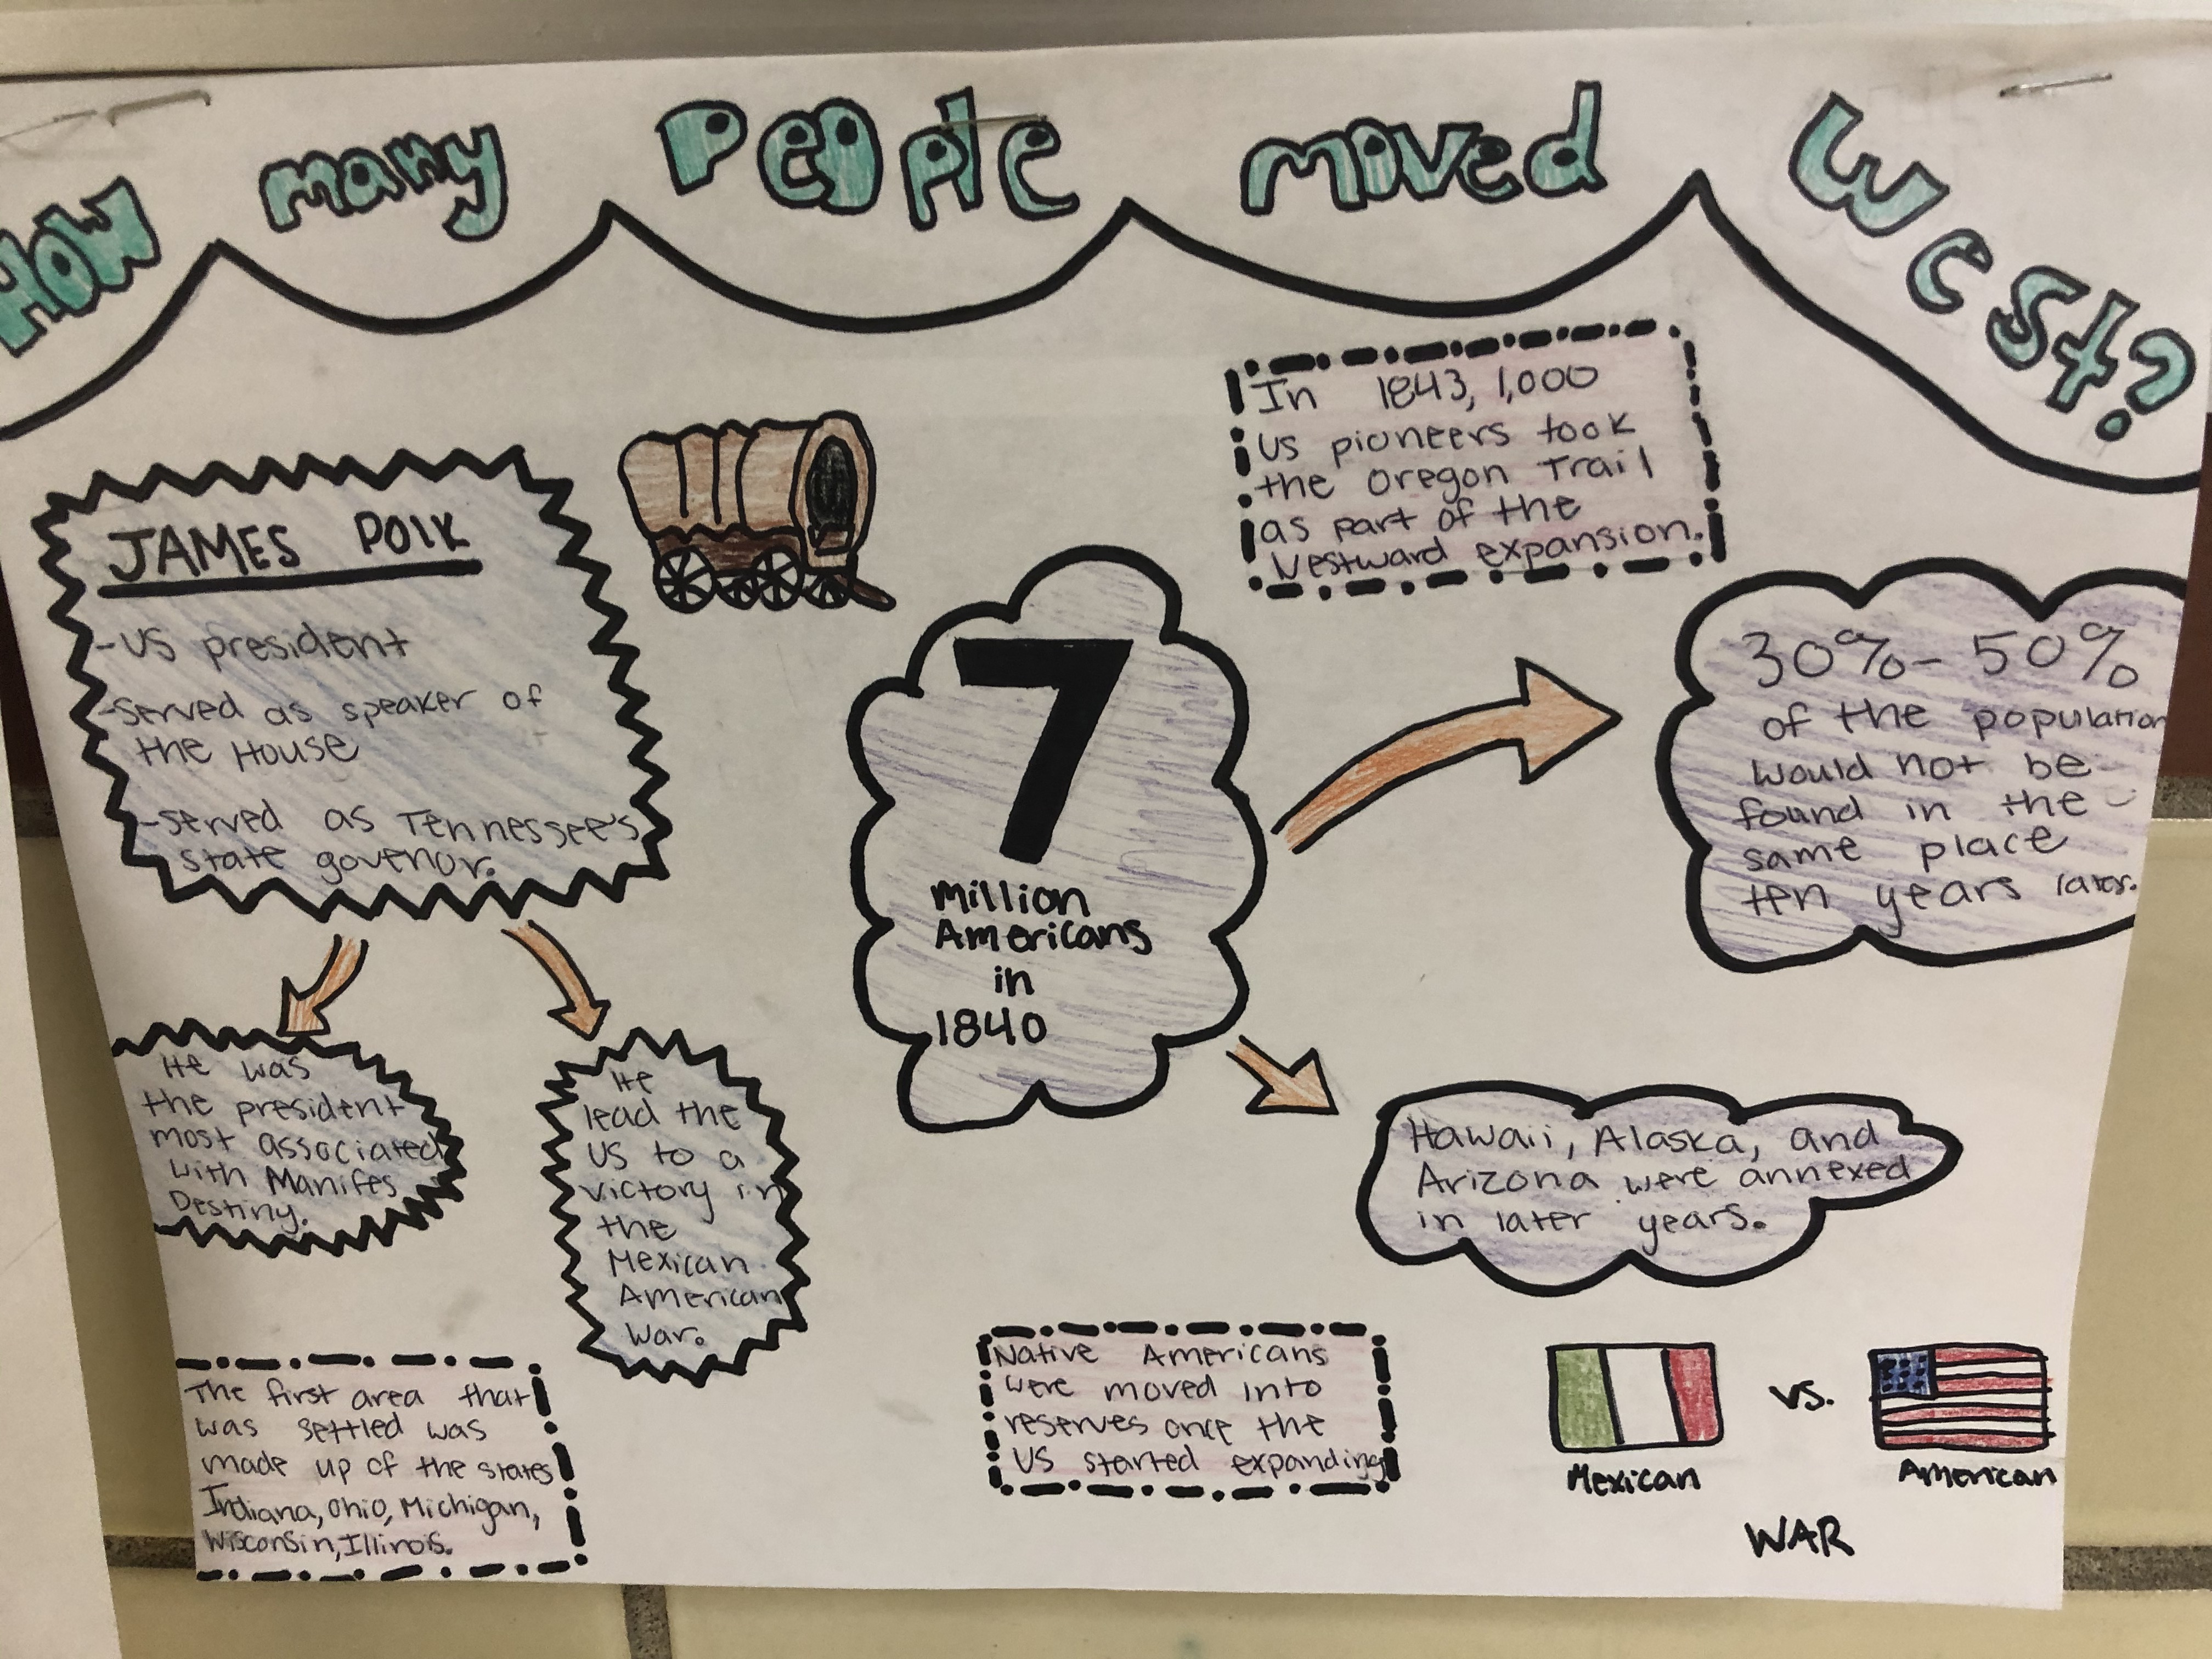 How many People moved West?
JAMES POlK
-US president
-served as speaker of
the House
-served as Tennessee's
state govenor.
He was
the president
most associated
with Manifes
Destiny.
He
lead the
US to a
victory in
the
Mexican
American
war.
The first area that
was settled was
made up of the states
Indiana, Ohio, Michigan,
Wisconsin, Illinois.
7
Million
Americans
in
1840
In 1843, 1,000
US pioneers took
the Oregon Trail
as part of the
Westward expansion.
30%-50%
of the population
would not be
found in the
same place
ten years later.
Hawaii, Alaska, and
Arizona were annexed
in later years.
Native Americans
were moved into
reserves once the
US started expanding
vs.
Mexican American
WAR